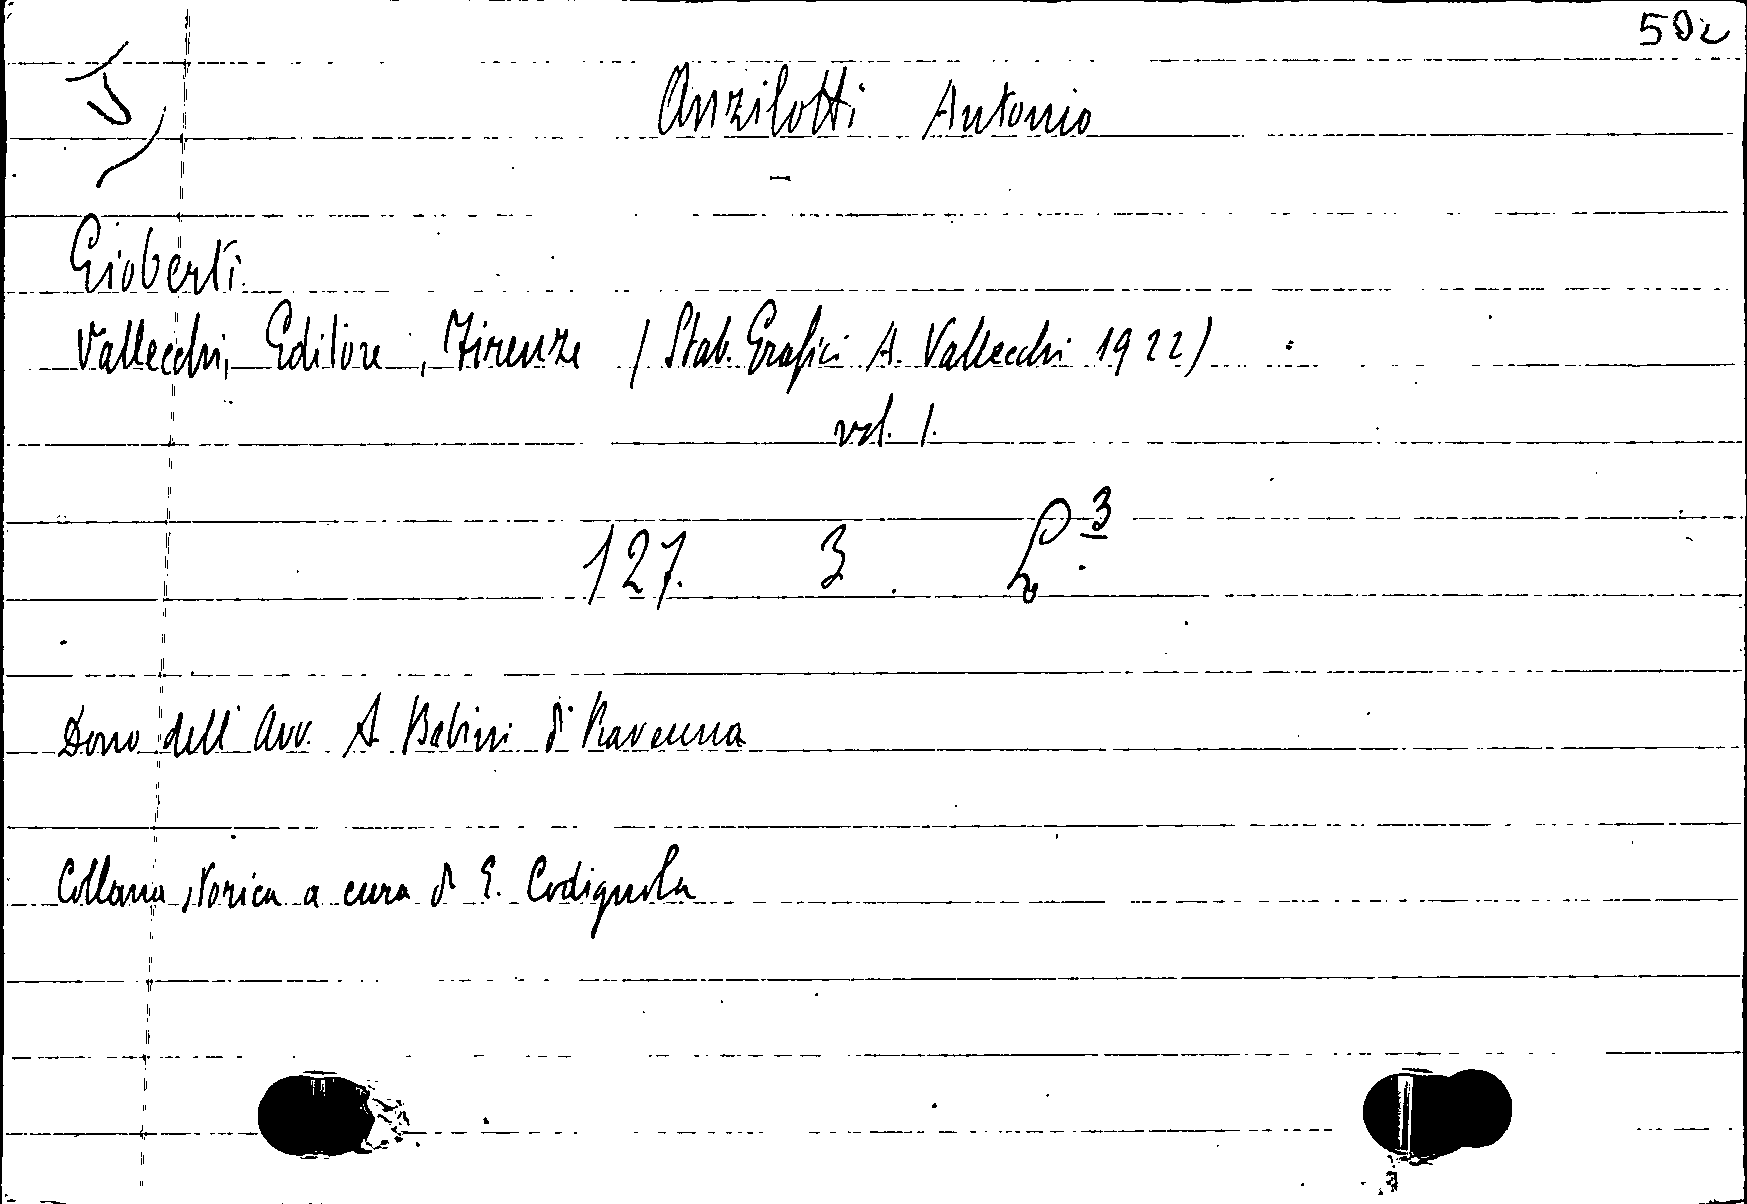 502
Anzilotti Antonio
Gioberti.
Vallecchi, Editore, Firenze (Stab. Grafici A. Vallecchi 1922)
vol. 1.
127. 3.
Dono dell' Avv. A. Babini di Ravenna
Collana storica a cura di E. Codignola